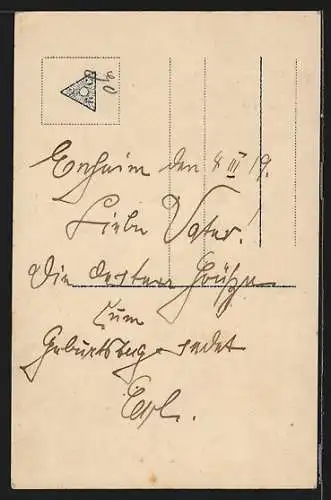 den 8 III 19.
Liebe Vater!
Die besten Grüße
zum
Geburtstag sendet
Carl.